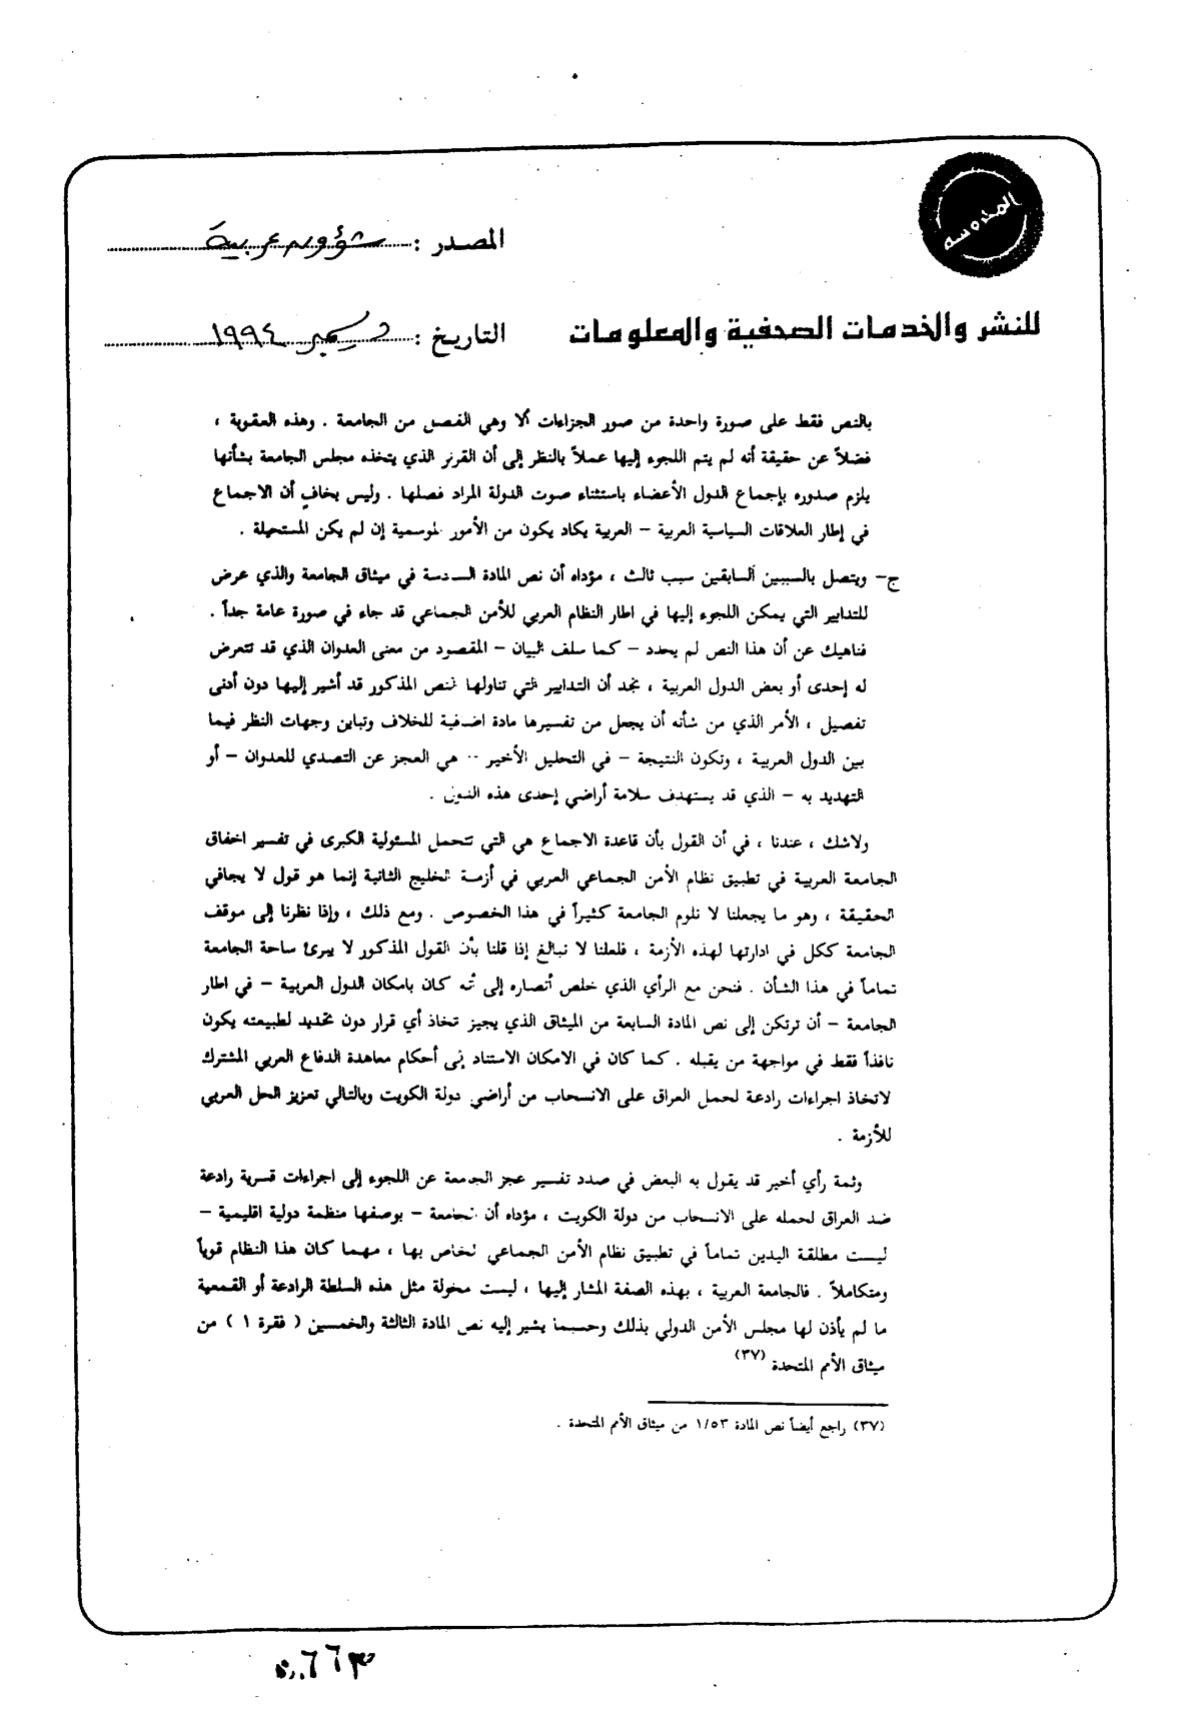 المحروسة
المصدر : شؤون عربية
للنشر والخدمات الصحفية والمعلومات
التاريخ : ديسمبر ١٩٩٤
بالنص فقط على صورة واحدة من صور الجزاءات ألا وهي الفصل من الجامعة . وهذه العقوبة ،
فضلاً عن حقيقة أنه لم يتم اللجوء إليها عملاً بالنظر إلى أن القرار الذي يتخذه مجلس الجامعة بشأنها
يلزم صدوره بإجماع الدول الأعضاء باستثناء صوت الدولة المراد فصلها . وليس بخافٍ أن الاجماع
في إطار العلاقات السياسية العربية – العربية يكاد يكون من الأمور الموسمية إن لم يكن المستحيلة .
ج– ويتصل بالسببين السابقين سبب ثالث ، مؤداه أن نص المادة السادسة في ميثاق الجامعة والذي عرض
للتدابير التي يمكن اللجوء إليها في اطار النظام العربي للأمن الجماعي قد جاء في صورة عامة جداً .
فناهيك عن أن هذا النص لم يحدد – كما سلف البيان – المقصود من معنى العدوان الذي قد تتعرض
له إحدى أو بعض الدول العربية ، نجد أن التدابير التي تناولها النص المذكور قد أشير إليها دون أدنى
تفصيل ، الأمر الذي من شأنه أن يجعل من تفسيرها مادة اضافية للخلاف وتباين وجهات النظر فيما
بين الدول العربية ، وتكون النتيجة – في التحليل الأخير – هي العجز عن التصدي للعدوان – أو
التهديد به – الذي قد يستهدف سلامة أراضي إحدى هذه الدول .
ولاشك ، عندنا ، في أن القول بأن قاعدة الاجماع هي التي تتحمل المسئولية الكبرى في تفسير اخفاق
الجامعة العربية في تطبيق نظام الأمن الجماعي العربي في أزمة الخليج الثانية إنما هو قول لا يجافي
الحقيقة ، وهو ما يجعلنا لا نلوم الجامعة كثيراً في هذا الخصوص . ومع ذلك ، وإذا نظرنا إلى موقف
الجامعة ككل في ادارتها لهذه الأزمة ، فلعلنا لا نبالغ إذا قلنا بأن القول المذكور لا يبرئ ساحة الجامعة
تماماً في هذا الشأن . فنحن مع الرأي الذي خلص أنصاره إلى أنه كان بامكان الدول العربية – في اطار
الجامعة – أن ترتكن إلى نص المادة السابعة من الميثاق الذي يجيز اتخاذ أي قرار دون تحديد لطبيعته يكون
نافذاً فقط في مواجهة من يقبله . كما كان في الامكان الاستناد إلى أحكام معاهدة الدفاع العربي المشترك
لاتخاذ اجراءات رادعة لحمل العراق على الانسحاب من أراضي دولة الكويت وبالتالي تعزيز الحل العربي
للأزمة .
وثمة رأي أخير قد يقول به البعض في صدد تفسير عجز الجامعة عن اللجوء إلى اجراءات قسرية رادعة
ضد العراق لحمله على الانسحاب من دولة الكويت ، مؤداه أن الجامعة – بوصفها منظمة دولية اقليمية –
ليست مطلقة اليدين تماماً في تطبيق نظام الأمن الجماعي الخاص بها ، مهما كان هذا النظام قوياً
ومتكاملاً . فالجامعة العربية ، بهذه الصفة المشار إليها ، ليست مخولة مثل هذه السلطة الرادعة أو القمعية
ما لم يأذن لها مجلس الأمن الدولي بذلك وحسبما يشير إليه نص المادة الثالثة والخمسين ( فقرة ١ ) من
ميثاق الأمم المتحدة (٣٧)
(٣٧) راجع أيضاً نص المادة ١/٥٣ من ميثاق الأمم المتحدة .